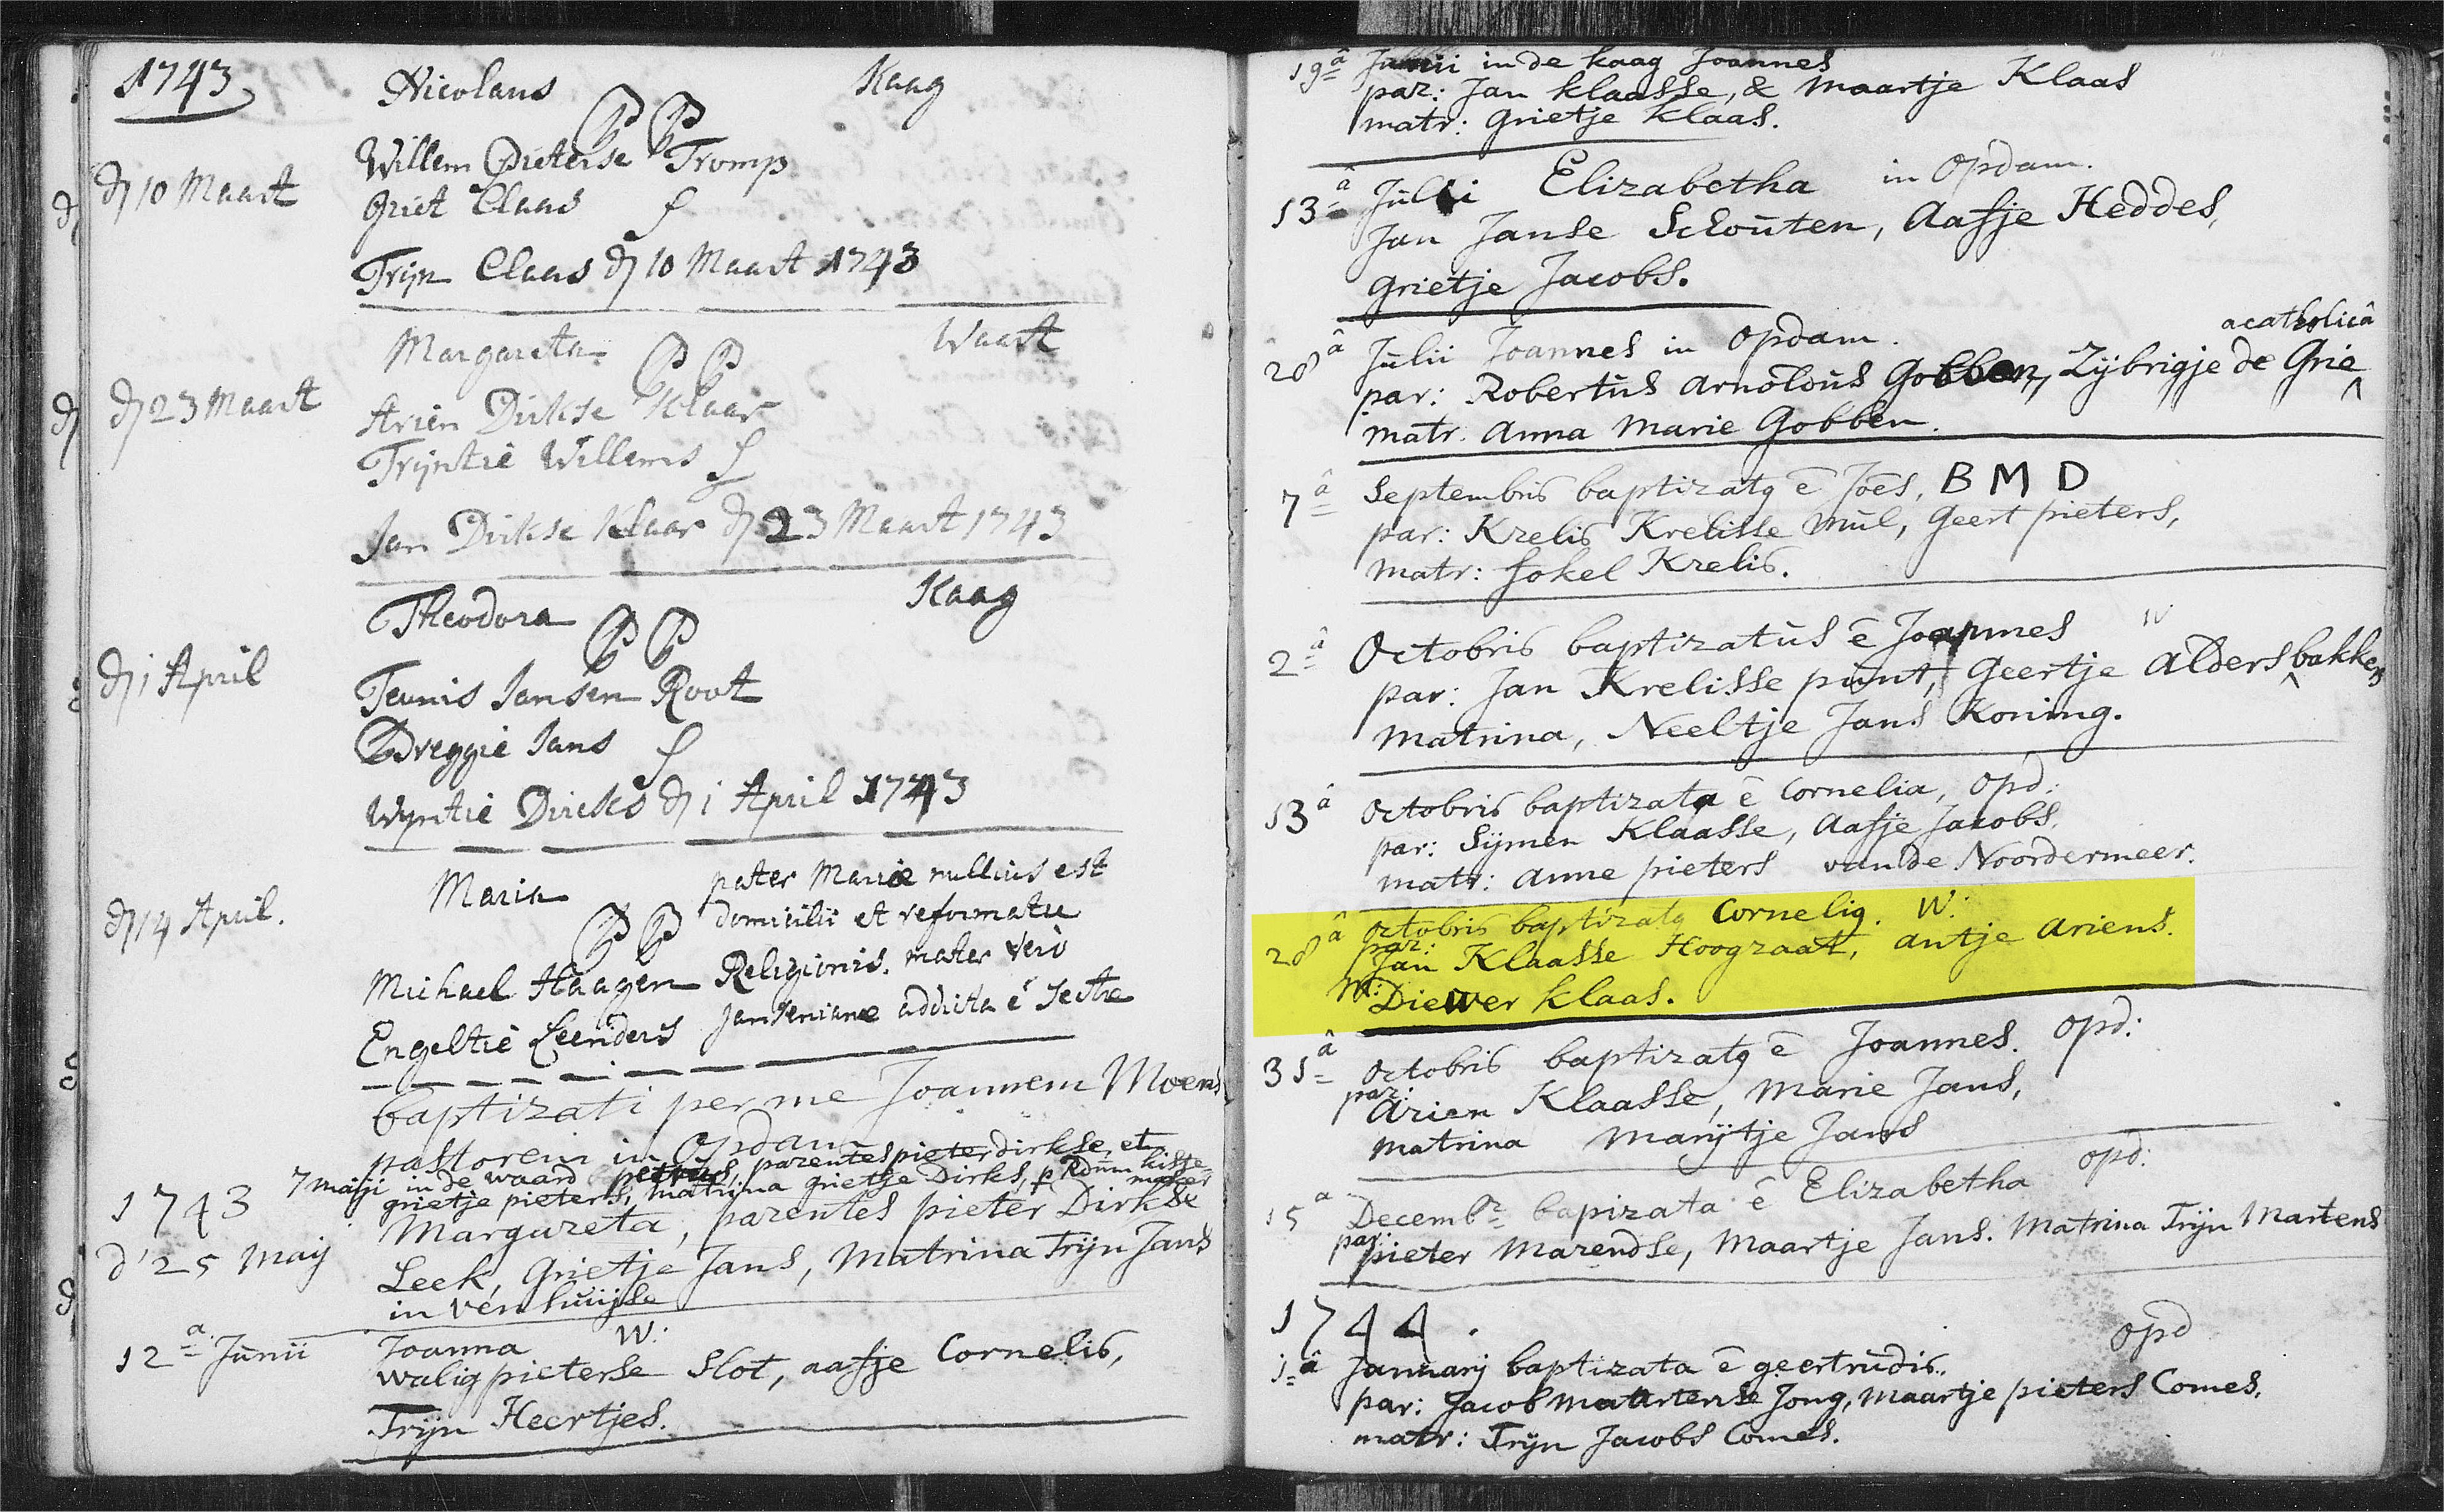 1743
Nicolaus Kaag
PP
Willem Pieterse Tromp
dj 10 Maart
Griet Claas
S
Trijn Claas dj 10 Maart 1743
Margareta Waart
PP
dj 23 Maart
Arien Dirkse Klaar
Trijntie Willems
S
Jan Dirkse Klaar dj 23 Maart 1743
Theodora Kaag
PP
dj 1 April
Teunis Jansen Root
Dreggie Jans
S
Wyntie Dircks dj 1 April 1743
Maria pater Mariæ nullius est
dj 14 April. domicilii et reformatæ
PP
Michael Haagen Religionis. mater vero
Engeltie Leenders Janseniane addicta ē Sectæ
baptizati per me Joannem Moens
pastorem in Opdam
7 maji in de waard petrus, parentes pieter dirkse, et
grietje pieters, matrina grietje Dirks,
1743 Margareta, parentes pieter Dirkse
d' 25 Maij Leek, Grietje Jans, Matrina Trijn Jans
in venhuijse
12a Junii Joanna W:
walig pieterse Slot, aafje Cornelis,
Trijn Heertjes.
19â Junii in de kaag Joannes
par: Jan klaasse, & Maartje Klaas
matr: grietje klaas.
13â Julii Elizabetha in Opdam.
Jan Janse Schouten, Aafje Heddes,
grietje Jacobs.
28â Julii Joannes in Opdam. acatholicâ
par: Robertus Arnoldus Gobben, Zijbrigje de Grie
matr. Anna Marie Gobben.
7â Septembris baptizatq ē Joēs, B M D
par: Krelis Krelisse Mul, Geert pieters,
matr: fokel Krelis.
2â Octobris baptizatus ē Joannes W
par: Jan Krelisse punt, Geertje alders bakker
Matrina, Neeltje Jans Koning.
13â Octobris baptizata ē Cornelia, Opd:
par: Sijmen Klaasse, Aafje Jacobs,
matr: Anne pieters van de Noordermeer.
28â Octobris baptizatq Cornelig. W:
par:
Jan Klaasse Hoogzaat, antje Ariens.
M: Diewer klaas.
31â Octobris baptizatq ē Joannes. Opd:
par:
Arien Klaasse, Marie Jans,
Matrina Marijtje Jans
15a Decembr bapizata ē Elizabetha opd:
par:
pieter Marendse, Maartje Jans. Matrina Trijn Martens
1744.
1â Januarij baptizata ē geertrudis. opd
par: Jacob Maartense Jong, Maartje pieters Comes,
matr: Trijn Jacobs Comes.